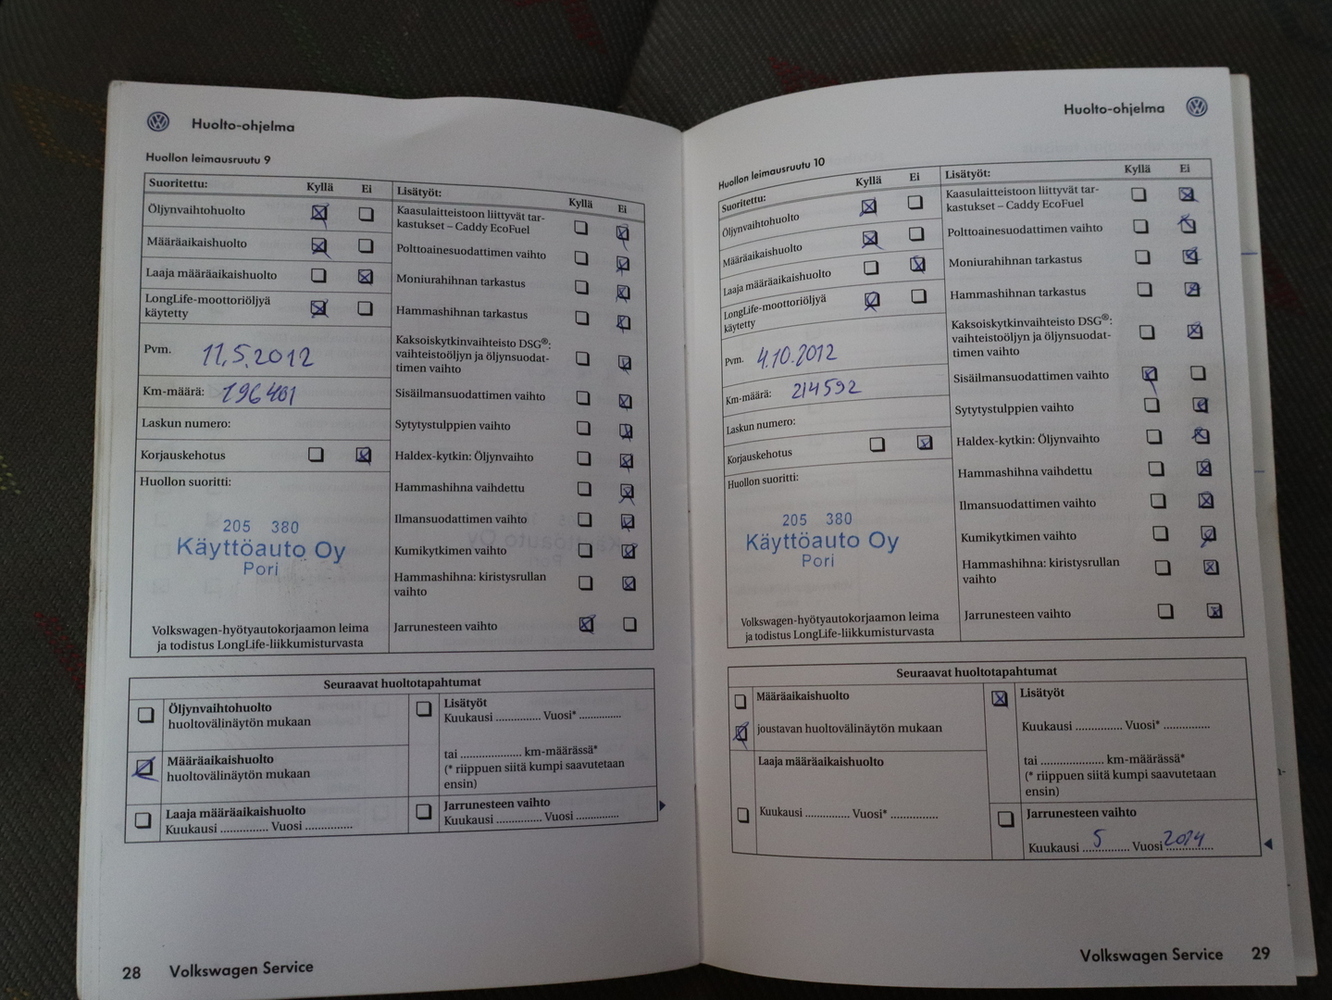 Huolto-ohjelma
Huollon leimausruutu 9
Suoritettu: Kyllä Ei
Öljynvaihtohuolto
Määräaikaishuolto
Laaja määräaikaishuolto
LongLife-moottoriöljyä
käytetty
Pvm. 11.5.2012
Km-määrä: 196401
Laskun numero:
Korjauskehotus
Huollon suoritti:
205 380
Käyttöauto Oy
Pori
Volkswagen-hyötyautokorjaamon leima
ja todistus LongLife-liikkumisturvasta
Lisätyöt: Kyllä Ei
Kaasulaitteistoon liittyvät tar-
kastukset – Caddy EcoFuel
Polttoainesuodattimen vaihto
Moniurahihnan tarkastus
Hammashihnan tarkastus
Kaksoiskytkinvaihteisto DSG®:
vaihteistoöljyn ja öljynsuodat-
timen vaihto
Sisäilmansuodattimen vaihto
Sytytystulppien vaihto
Haldex-kytkin: Öljynvaihto
Hammashihna vaihdettu
Ilmansuodattimen vaihto
Kumikytkimen vaihto
Hammashihna: kiristysrullan
vaihto
Jarrunesteen vaihto
Seuraavat huoltotapahtumat
Öljynvaihtohuolto
huoltovälinäytön mukaan
Määräaikaishuolto
huoltovälinäytön mukaan
Laaja määräaikaishuolto
Kuukausi .............. Vuosi ..............
Lisätyöt
Kuukausi ............. Vuosi* ............
tai .................. km-määrässä*
(* riippuen siitä kumpi saavutetaan
ensin)
Jarrunesteen vaihto
Kuukausi ............. Vuosi ............
28 Volkswagen Service
Huolto-ohjelma
Huollon leimausruutu 10
Suoritettu: Kyllä Ei
Öljynvaihtohuolto
Määräaikaishuolto
Laaja määräaikaishuolto
LongLife-moottoriöljyä
käytetty
Pvm. 4.10.2012
Km-määrä: 214592
Laskun numero:
Korjauskehotus
Huollon suoritti:
205 380
Käyttöauto Oy
Pori
Volkswagen-hyötyautokorjaamon leima
ja todistus LongLife-liikkumisturvasta
Lisätyöt: Kyllä Ei
Kaasulaitteistoon liittyvät tar-
kastukset – Caddy EcoFuel
Polttoainesuodattimen vaihto
Moniurahihnan tarkastus
Hammashihnan tarkastus
Kaksoiskytkinvaihteisto DSG®:
vaihteistoöljyn ja öljynsuodat-
timen vaihto
Sisäilmansuodattimen vaihto
Sytytystulppien vaihto
Haldex-kytkin: Öljynvaihto
Hammashihna vaihdettu
Ilmansuodattimen vaihto
Kumikytkimen vaihto
Hammashihna: kiristysrullan
vaihto
Jarrunesteen vaihto
Seuraavat huoltotapahtumat
Määräaikaishuolto
joustavan huoltovälinäytön mukaan
Laaja määräaikaishuolto
Kuukausi ............. Vuosi* .............
Lisätyöt
Kuukausi ............. Vuosi* .............
tai .................. km-määrässä*
(* riippuen siitä kumpi saavutetaan
ensin)
Jarrunesteen vaihto
Kuukausi 5 Vuosi 2014
Volkswagen Service 29